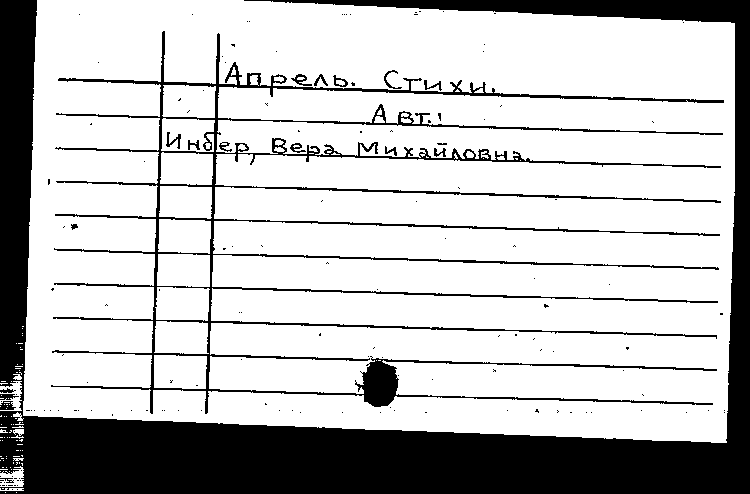 Апрель. Стихи.
Авт.:
Инбер, Вера Михайловна.